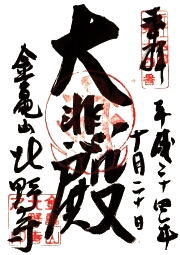 奉拝
平成二十四年
十月二十日
大悲殿
金亀山
北野寺